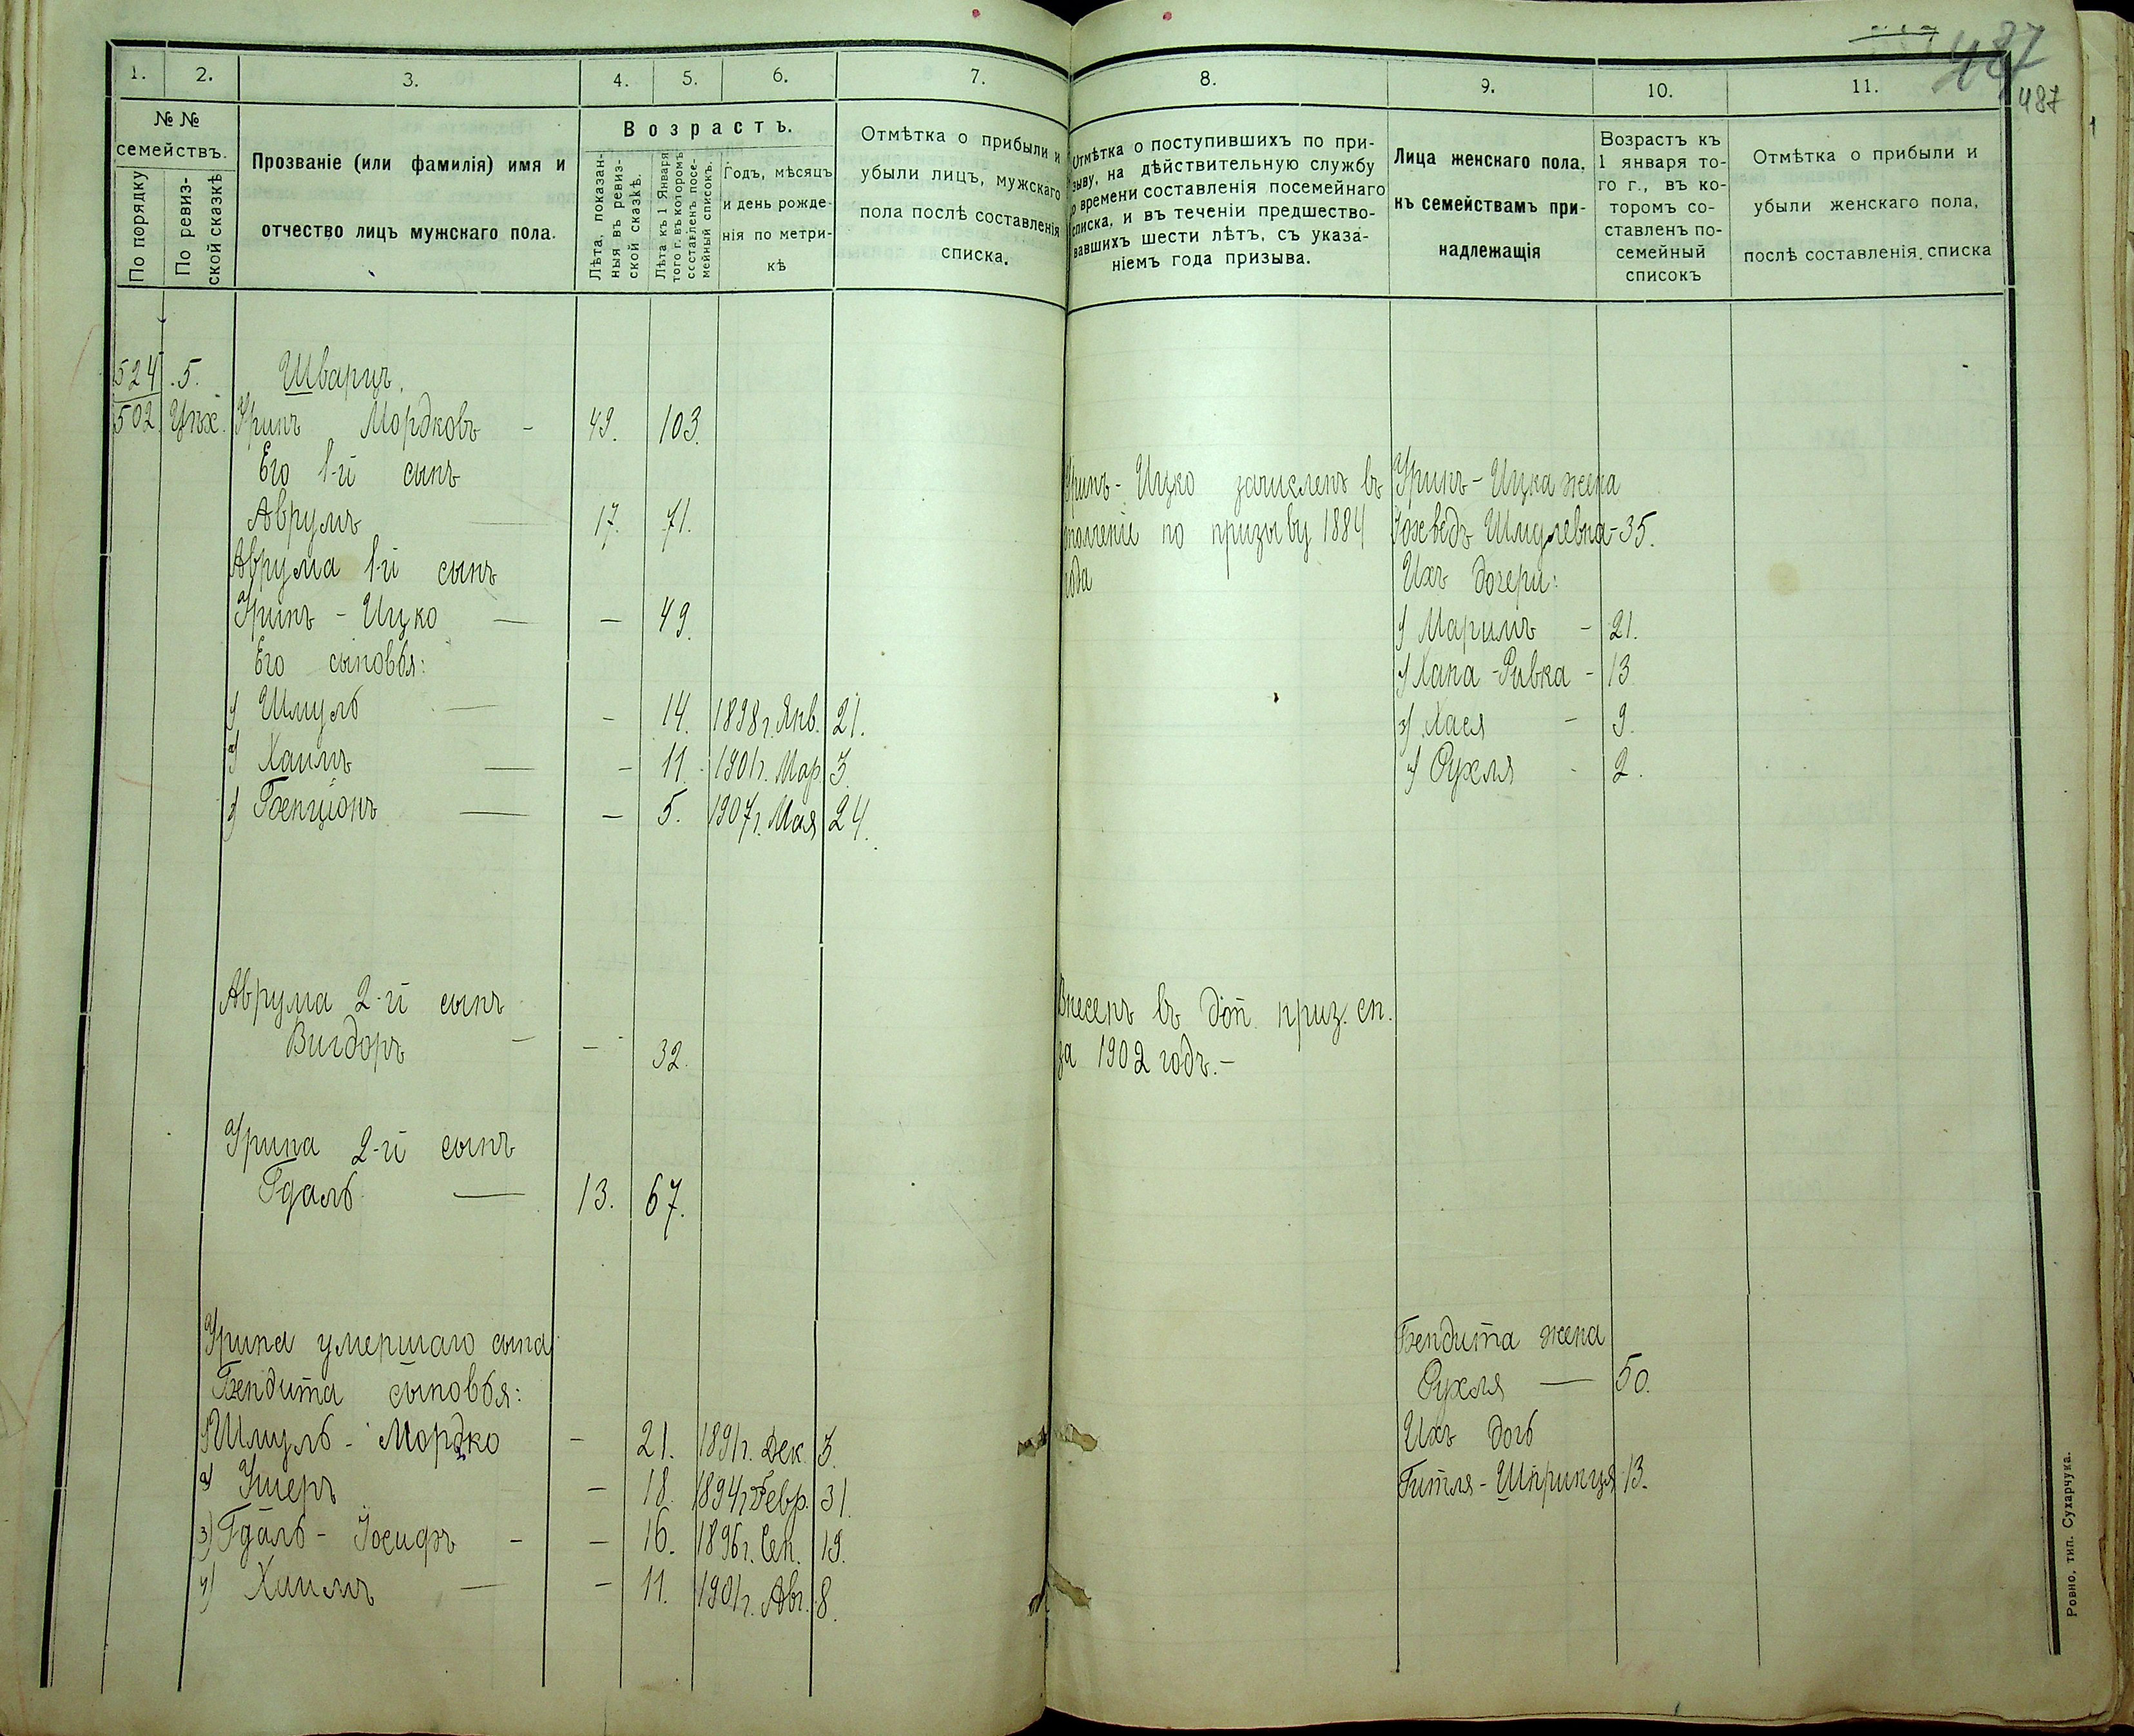 487
487
1.
2.
3.
4.
5.
6.
7.
№ №
семействъ.
По порядку
По ревиз-
ской сказкѣ
Прозваніе (или фамилія) имя и
отчество лицъ мужскаго пола.
Возрастъ.
Лѣта, показан-
ныя въ ревиз-
ской сказкѣ.
Лѣта къ 1 Января
того г. въ которомъ
составленъ посе-
мейный списокъ.
Годъ, мѣсяцъ
и день рожде-
нія по метри-
кѣ
Отмѣтка о прибыли и
убыли лицъ, мужскаго
пола послѣ составленія
списка.
524 5. Шварцъ.
502 Цех. Уринъ Мордковъ - 49. 103.
Его 1-й сынъ
Аврумъ — 17. 71.
Аврума 1-й сынъ
Уринъ - Ицко — — 49.
Его сыновья:
1) Шмуль — - 14. 1898 г. Янв. 21.
2) Хаимъ — - 11. 1901 г. Мар. 3.
3) Бенціонъ — - 5. 1907 г. Мая 24.
Аврума 2-й сынъ
Вигдоръ - - 32.
Урина 2-й сынъ
Гдаль — 13. 67.
Урина умершаго сына
Бендита сыновья:
1) Шмуль - Мордко - 21. 1891 г. Дек. 3.
2) Ушеръ - 18. 1894 г. Февр. 31.
3) Гдаль - Іосифъ - - 16. 1896 г. Сен. 19.
4) Хаимъ — - 11. 1901 г. Авг. 8.
8.
9.
10.
11.
Отмѣтка о поступившихъ по при-
зыву, на дѣйствительную службу
о времени составленія посемейнаго
списка, и въ теченіи предшество-
вавшихъ шести лѣтъ, съ указа-
ніемъ года призыва.
Лица женскаго пола,
къ семействамъ при-
надлежащія
Возрастъ къ
1 января то-
го г., въ ко-
торомъ со-
ставленъ по-
семейный
списокъ
Отмѣтка о прибыли и
убыли женскаго пола,
послѣ составленія списка
Уринъ - Ицко зачисленъ въ
ополченіе по призыву 1884
года
Уринъ - Ицка жена
Іохведъ Шмулевна - 35.
Ихъ дочери:
1) Маримъ - 21.
2) Хана - Ривка - 13
3) Хася - 9.
4) Рухля - 2.
Внесенъ въ доп. приз. сп.
за 1902 годъ. -
Бендита жена
Рухля — 50.
Ихъ дочь
Гитля - Шпринця 13.
Ровно, тип. Сухарчука.